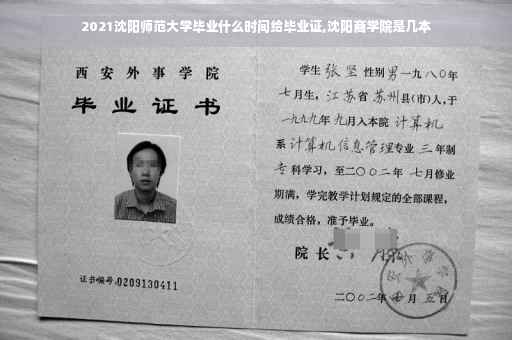 2021沈阳师范大学毕业什么时间给毕业证,沈阳商学院是几本
西安外事学院
毕业证书
证书编号:0209130411
学生张坚性别男一九八〇年
七月生,江苏省苏州县(市)人,于
一九九九年九月入本院计算机
系计算机信息管理专业三年制
专科学习,至二〇〇二年七月修业
期满,学完教学计划规定的全部课程,
成绩合格,准予毕业。
院长
二〇〇二年 月五日